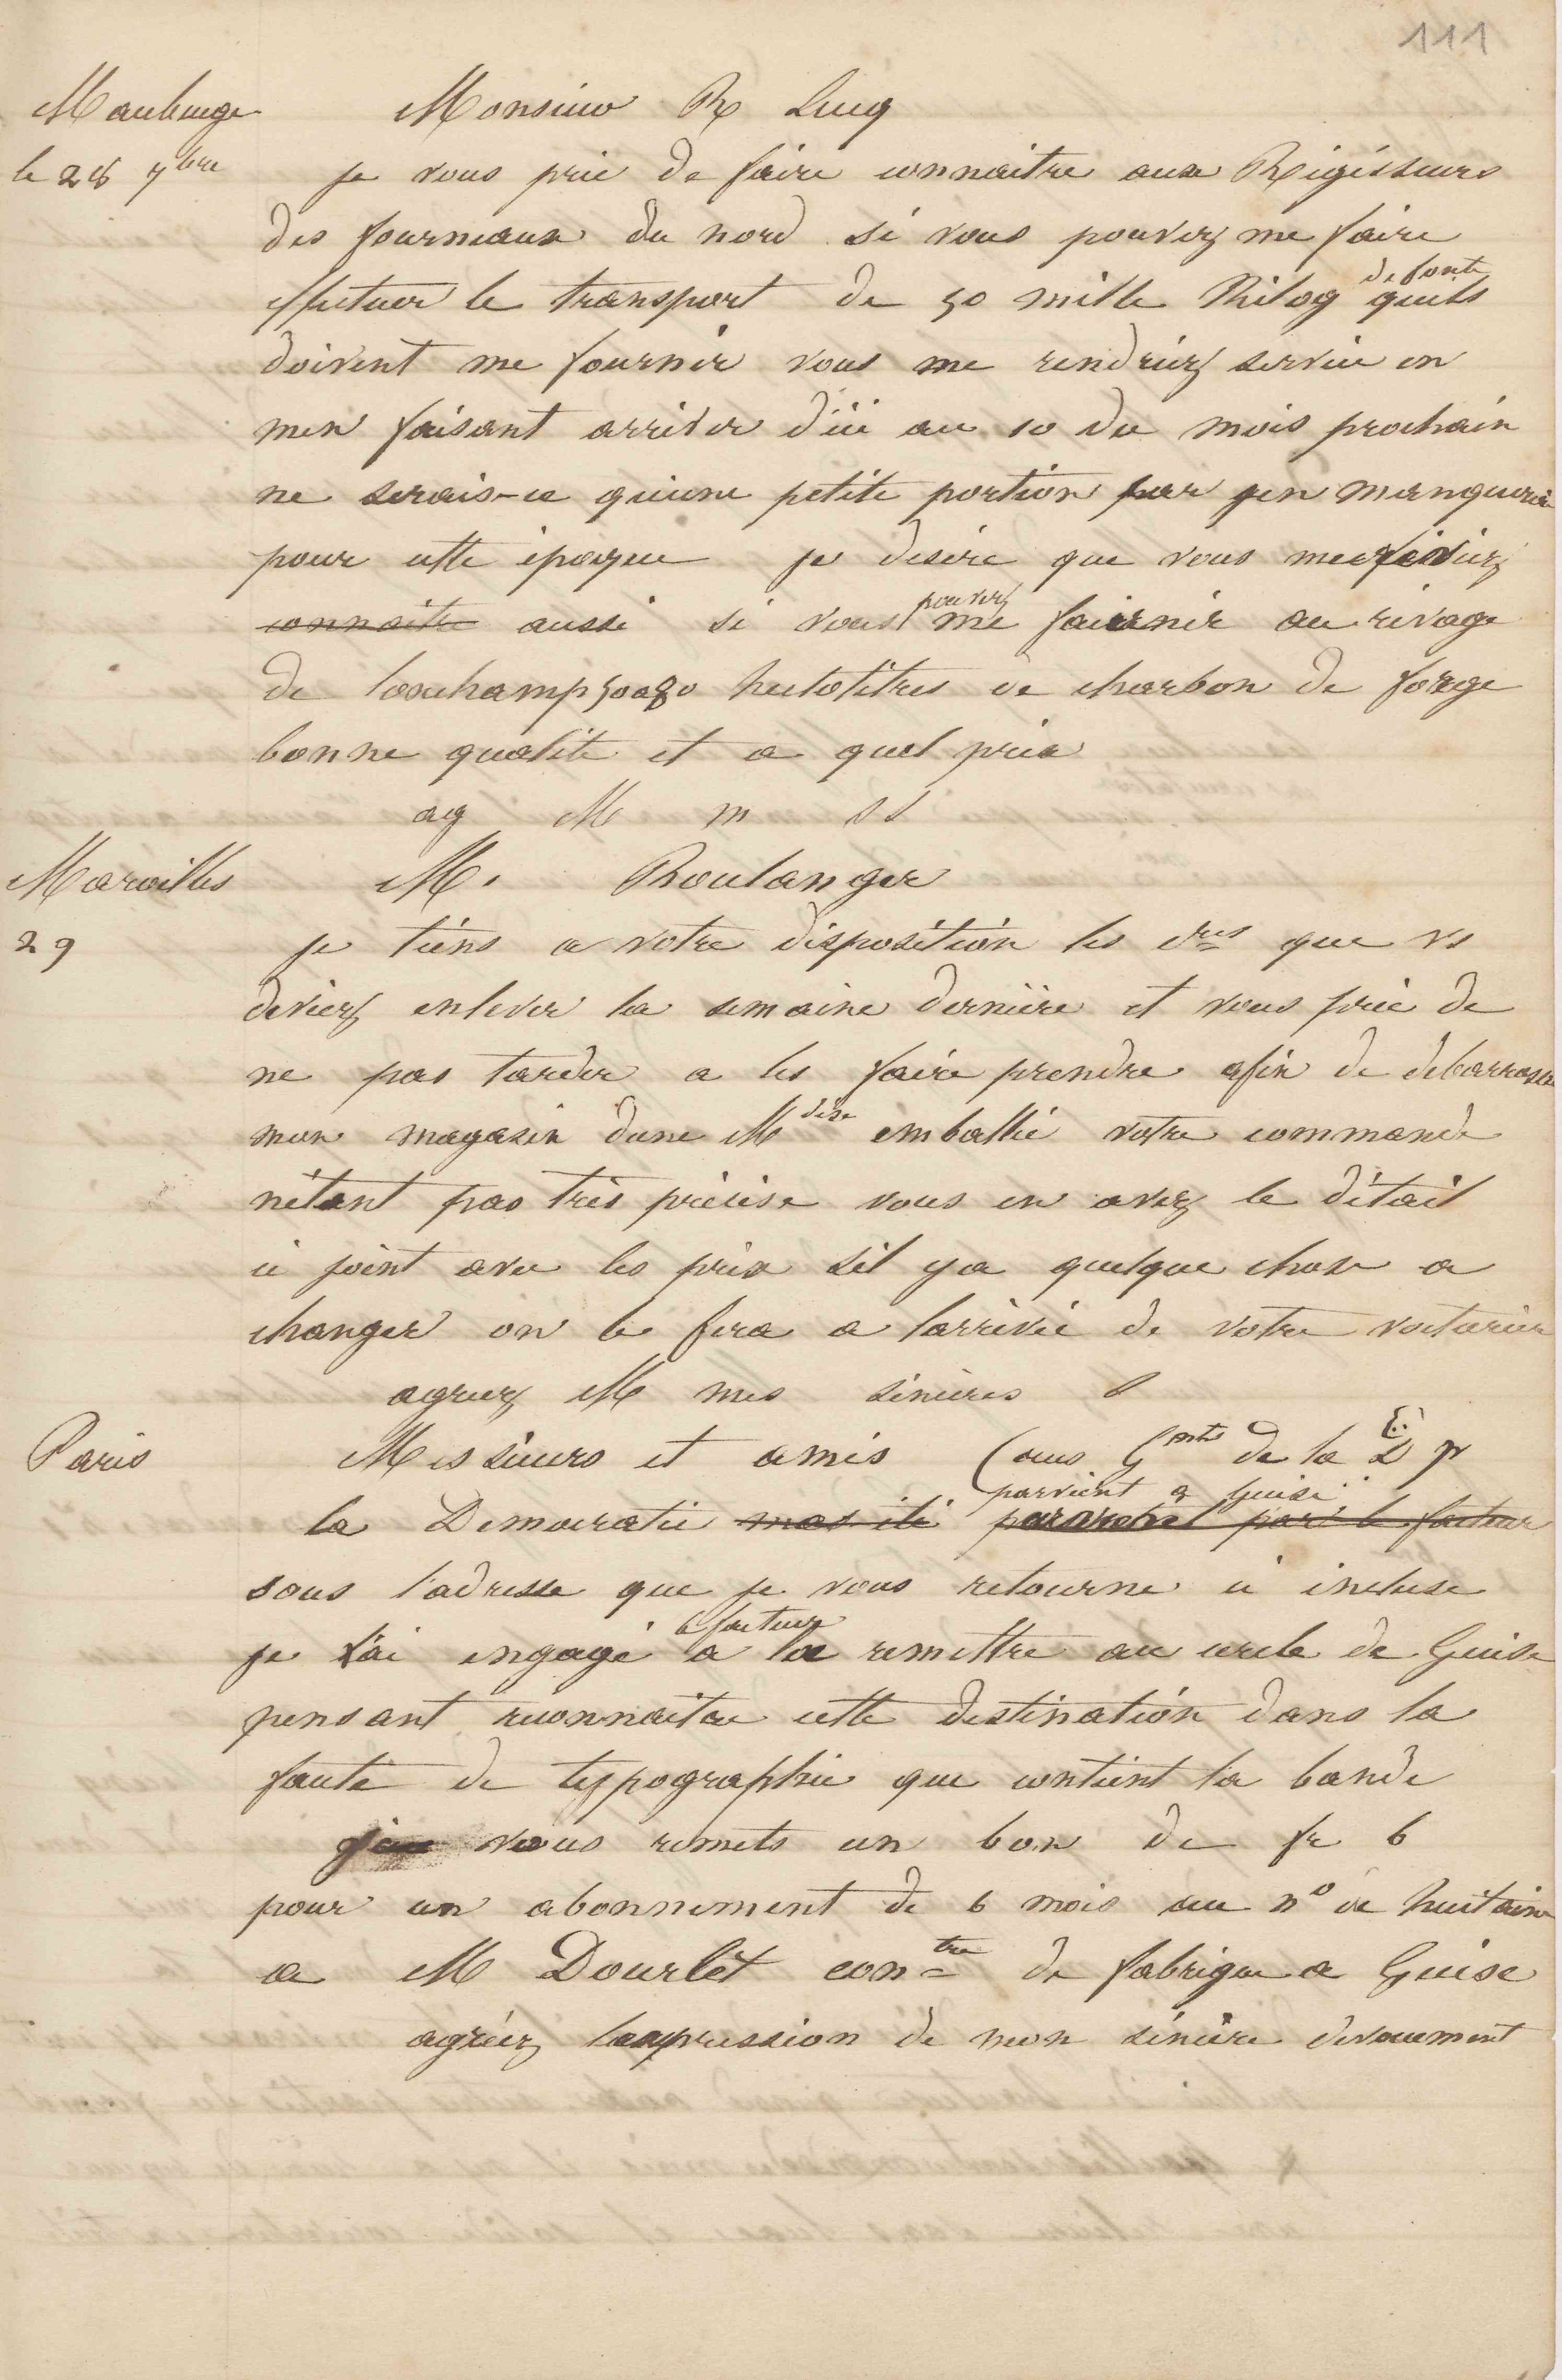 111
Maubeuge Monsieur R Lucq
le 28 7bre je vous prie de faire connaitre aux Régisseurs
des fourneaux du nord si vous pouvez me faire
effectuer le transport de 50 mille Kilog de fonte quils
doivent me fournir vous me rendriez service en
men faisant arriver dici au 10 du mois prochain
ne serais-ce quune petite portion car jen manquerai
pour cette époque je desire que vous me disiez
connaitre aussi si vous pouvez me fournir au rivage
de lonchamp 50 a 80 hectolitres de charbon de forge
bonne qualité et a quel prix
ag M m s s
Maroilles M. Boulanger
29 je tiens a votre disposition les que vs
deviez enlever la semaine dernière et vous prie de
ne pas tarder a les faire prendre afin de debarrasser
mon magasin dune Mdise emballée votre commande
nétant pas très précise vous en avez le détail
ci joint avec les prix sil y a quelque chose a
changer on le fera a larrivée de votre voiturier
agreez M mes sincères s
Paris Messieurs et amis (aux Gants de la D p
la Democratie mas été parvient a Guise par le facteur
sous l'adresse que je vous retourne ci incluse
je l'ai engagé le facteur a la remettre au cercle de Guise
pensant reconnaitre cette destination dans la
faute de typographie que contient la bande
je vous remets un bon de fr 6
pour un abonnement de 6 mois au n° de huitaine
a M Dourlet contre de fabrique a Guise
agréez lexpression de mon sincère devouement